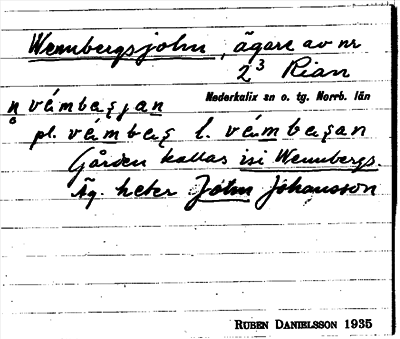 Wennbergsjohn, ägare av nr
2³ Rian
Nederkalix sn o. tg. Norrb. län
pl. l.
Gården kallas isi Wennbergs.
Äg. heter John Johansson
RUBEN DANIELSSON 1935